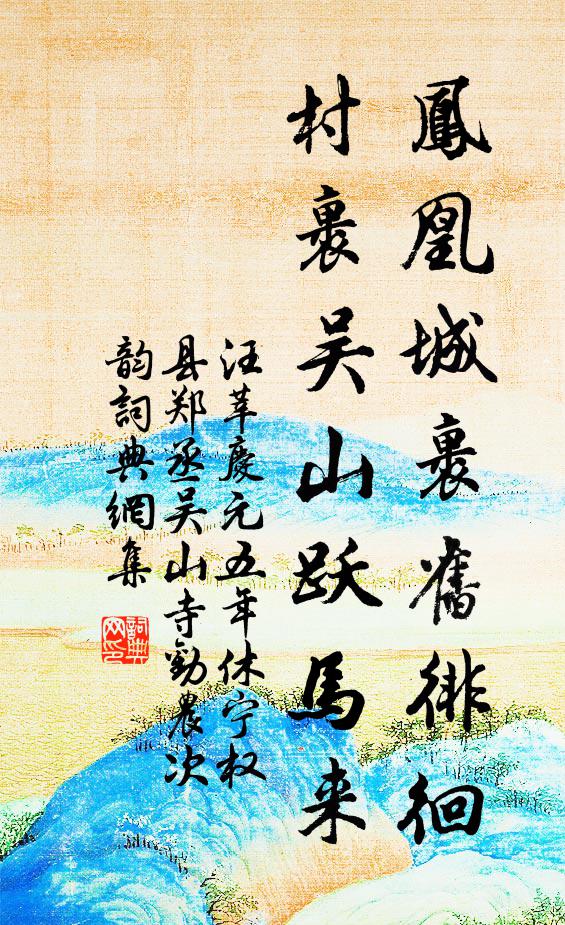 鳳凰城裏舊徘徊
村裏吴山跃馬来
汪莘慶元五年休宁权
县郑丞吴山寺勸農次
韵詞典網集
詞典
网印